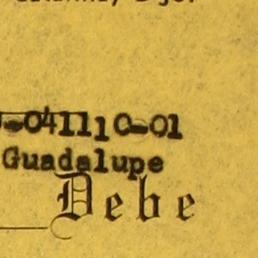 -041110-01
Guadalupe
Debe